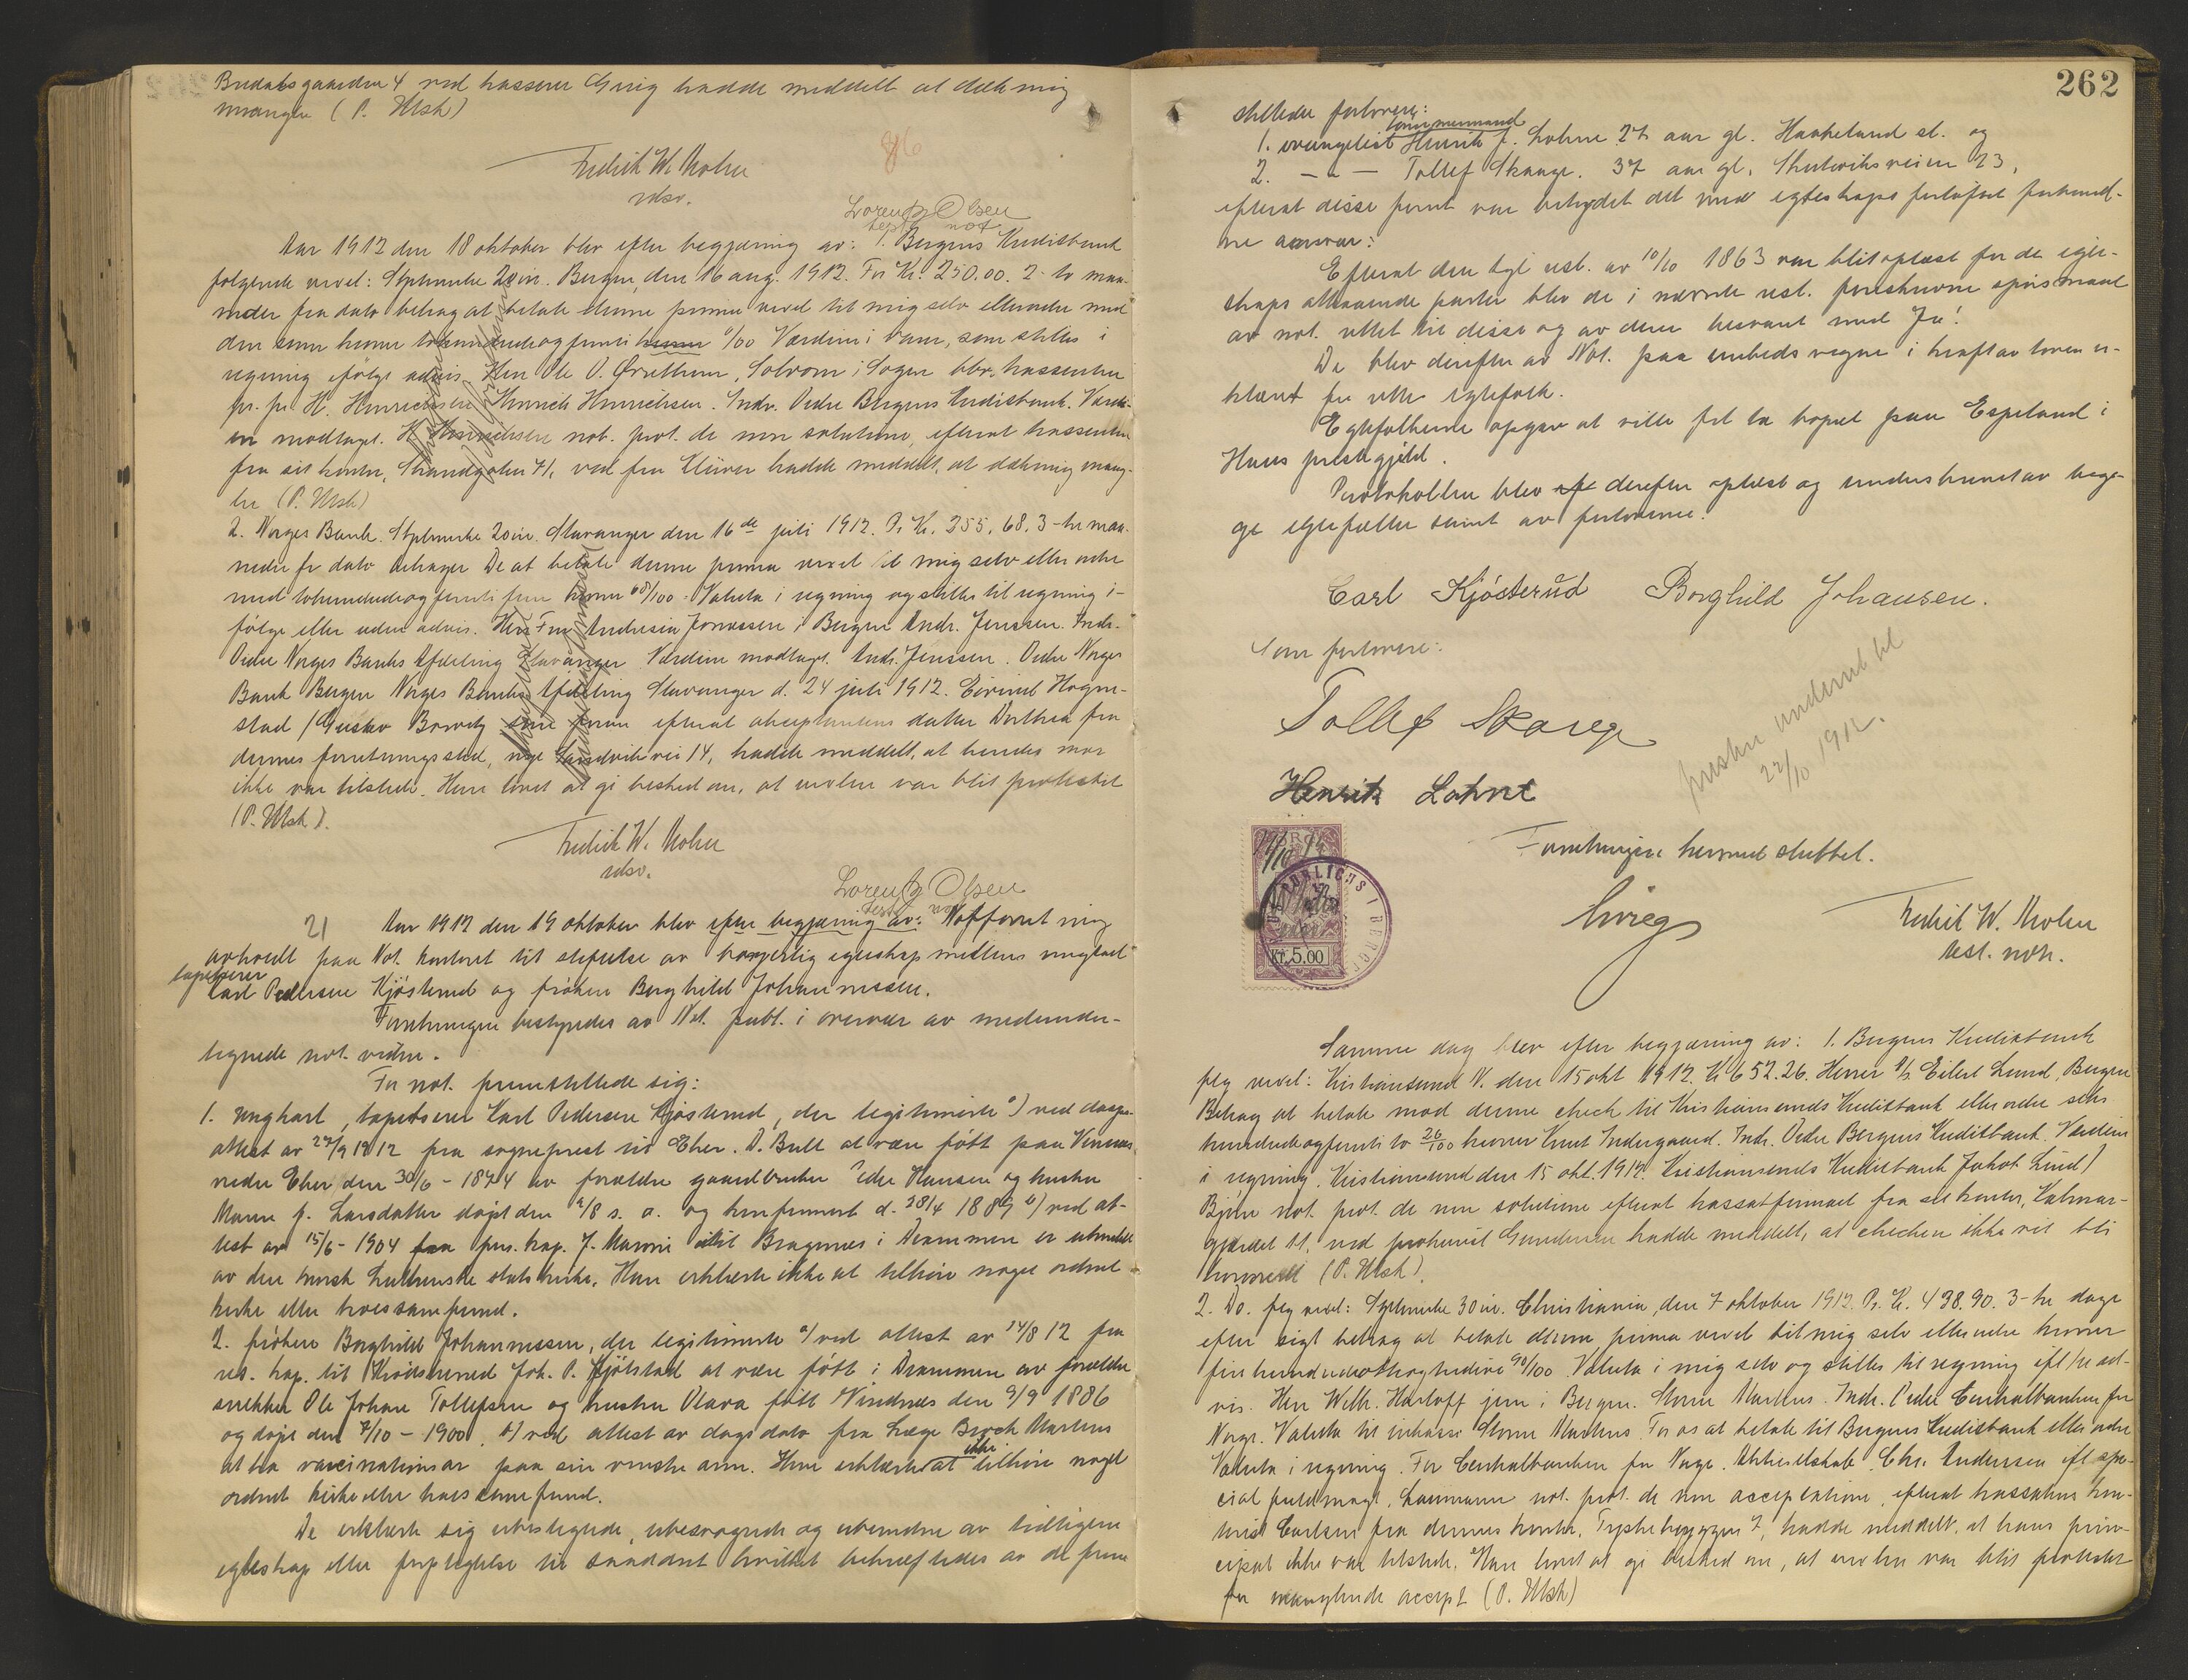 Bredalsgaarden 4 ved kasserer Grieg hadde meddelt at dækning
mangler (P. Utsk)
86
Fredrik W. Mohn
edsv.
Lorentz Olsen
test. not
Aar 1912 den 18 oktober blev efter begjæring av: 1. Bergens Kreditbank
følgende vexel: Stpl.merke 20 øre. Bergen, den 16 aug. 1912. For Kr. 250.00. 2 - to maa-
neder fra dato behag at betale denne prima vexel til mig selv eller ordre med
den sum kroner tohundredeogfemti kroner 0/00 Værdien i varer, som stilles i
regning ifølge advis. Herr Ole O. Ørrethun, Solvorn i Sogn bbr. kassenten
pr. pr. H. Hinrichsen Hinrich Hinrichsen. Indr. Ordre Bergens Kreditbank. Værdi-
en modtaget. H. Hinrichsen not. prot. de non solutione, efterat kassenten
fra sit kontor, Strandgaten 71, ved frk Klüver hadde meddelt, at dækning mang-
ler (P. Utsk)
2. Norges Bank. Stpl.merke 20 øre. Stavanger den 16de juli 1912. Pr. Kr. 255,68. 3-tre maa-
neder fr dato behager De at betale denne prima vexel til mig selv eller ordre
med tohundredeogfemti fem kroner 68/100. Valuta i regning og stilles til regning i-
følge eller uden advis. Herr Fru Andresia Jonassen i Bergen Andr. Jenssen. Indr.
Ordre Norges Banks Afdeling Stavanger. Værdien modtaget. Andr. Jenssen. Ordre Norges
Bank Bergen Norges Banks Afdeling Stavanger d. 24 juli 1912. Eivind Hogne-
stad / Gustav efterat akseptantens datter Dorthea fra
dennes forretningssted, nye Sandviksvei 14, hadde meddelt, at hendes mor
ikke var tilstede. Hun lovet at gi besked om, at vexlen var blit protestert
(P. Utsk).
Fredrik W. Mohn
edsv.
Lorentz Olsen
test. not
21
Aar 1912 den 19 oktober blev efter begjæring av: Notforret ning
avholdt paa Not. kontoret til stiftelse av borgerlig egteskap mellem ungkarl
tapetserer
Carl Pedersen Kjøsterud og frøken Borghild Johannessen.
Forretningen bestyredes av Not. publ. i overvær av medunder-
tegnede not. vidne.
For not. fremstillede sig:
1. ungkarl, tapetserer Karl Pedersen Kjøsterud, der legitimerte a) ved daaps-
attest av 27/9 1912 fra sogneprest til Eker. D. Bull at være født paa
nedre Eker den 30/6 - 1874 av forældre gaardbruker Peder Hansen og hustru
Maren J. Larsdatter døpt den 2/8 s. a. og konfirmert d. 28/4 1889 b) ved at-
test av 15/6 - 1904 fra pers. kap. J. til Bragernes i Drammen er utmeldt
av den norsk Lutherske statskirke. Han erklærte ikke at tilhøre noget ordnet
kirke eller trossamfund.
2. frøken Borghild Johannessen, der legitimerte a) ved attest av 14/8 12 fra
res. kap. til Krødsherred Joh. P. Kjølstad at være født i Drammen av forældre
snekker Ole Johan Tollefsen og hustru Olava født den 9/9 1886
og døpt den 7/10 - 1900. b) ved attest av dags dato fra Læge Borch Martens
at ha vaccinationsar paa sin venstre arm. Hun erklærte at ikke tilhøre noget
ordnet kirke eller trossamfund.
De erklærte sig ubeslegtede, ubesvogrede og ubundne av tidligere
egteskap eller forpligtelse til saadant hvilket bekræftedes av de frem
262
stillede forlovere:
tømmermand
1. evangelist Henrik J. Lohne 27 aar gl. Haakeland st. og
2. — " — Tollef Skauge. 37 aar gl. Skuteviksveien 23,
efterat disse forut var betydet det med egteskaps forlofte forbund-
ne ansvar:
Efterat den kgl. resl. av 10/10 1863 var blit oplæst for de egte-
skaps attraaende parter blev de i nævnte resl. foreskrevne spørsmaal
av not. rettet til disse og av dem besvaret med Ja!
De blev derefter av Not. paa embeds vegne i kraft av loven er-
klæret for rette egtefolk.
Egtefolkene opgav at ville fst ta bopæl paa Espeland i
Haus prestegjeld.
Protokollen blev derefter oplæst og underskrevet av beg-
ge egtefæller samt av forloverne.
Carl Kjösterud Borghild Johansen.
Som forlovere:
Tollef Skauge
Henrik Lohne
presten underret bl
22/10 1912.
Forretningen hermed sluttet.
Kr. 5.00
Grieg
Fredrik W. Mohn
test. not.
Samme dag blev efter begjæring av: 1. Bergens Kreditbank
følg vexel: Kristiansund N. den 15 okt 1912. Kr 652.26. Herrer A/S Eilert Lund, Bergen
Behag at betale mod denne check til Kristiansunds Kreditbank eller ordre seks
hundredeogfemti to 26/100 kroner Knut Indergaard. Indr. Ordre Bergens Kreditbank. Værdien
i regning. Kristiansund den 15 okt. 1912. Kristiansunds Kreditbank Jakob Lund /
Bjørn not. prot. de non solutione efterat trassatfirmaet fra sit kontor, Kalmar-
gjerdet 11, ved prokurist Gundersen hadde meddelt, at checken ikke vil bli
honorert (P. Utsk).
2. Do. følg vexel: Stpl.merke 30 øre. Christiania, den 7 oktober 1912. Pr. Kr. 438.90. 3-tre dage
efter sigt behag at betale denne prima vexel til mig selv eller ordre kroner
firehundredeotteogtredive 90/100. Valuta i mig selv og stilles til regning ifl/re ad-
vis. Herr Wilh. Harloff jun i Bergen. Storm Martens. Indr. Ordre Centralbanken for
Norge. Valuta til inkasso Storm Martens. For os at betale til Bergens Kreditbank eller ordre
Valuta i regning. For Centralbanken for Norge. Aktieselskab. Chr. Andersen ifl spe-
cial fuldmagt. Laumann not. prot. de non acceptatione, efterat trassatens kon-
torist Carlsen fra dennes kontor, Tyskebryggen 7, hadde meddelt, at hans prin-
cipal ikke var tilstede. Han lovet at gi besked om, at vexlen var blit protestert
for manglende accept (P. Utsk)